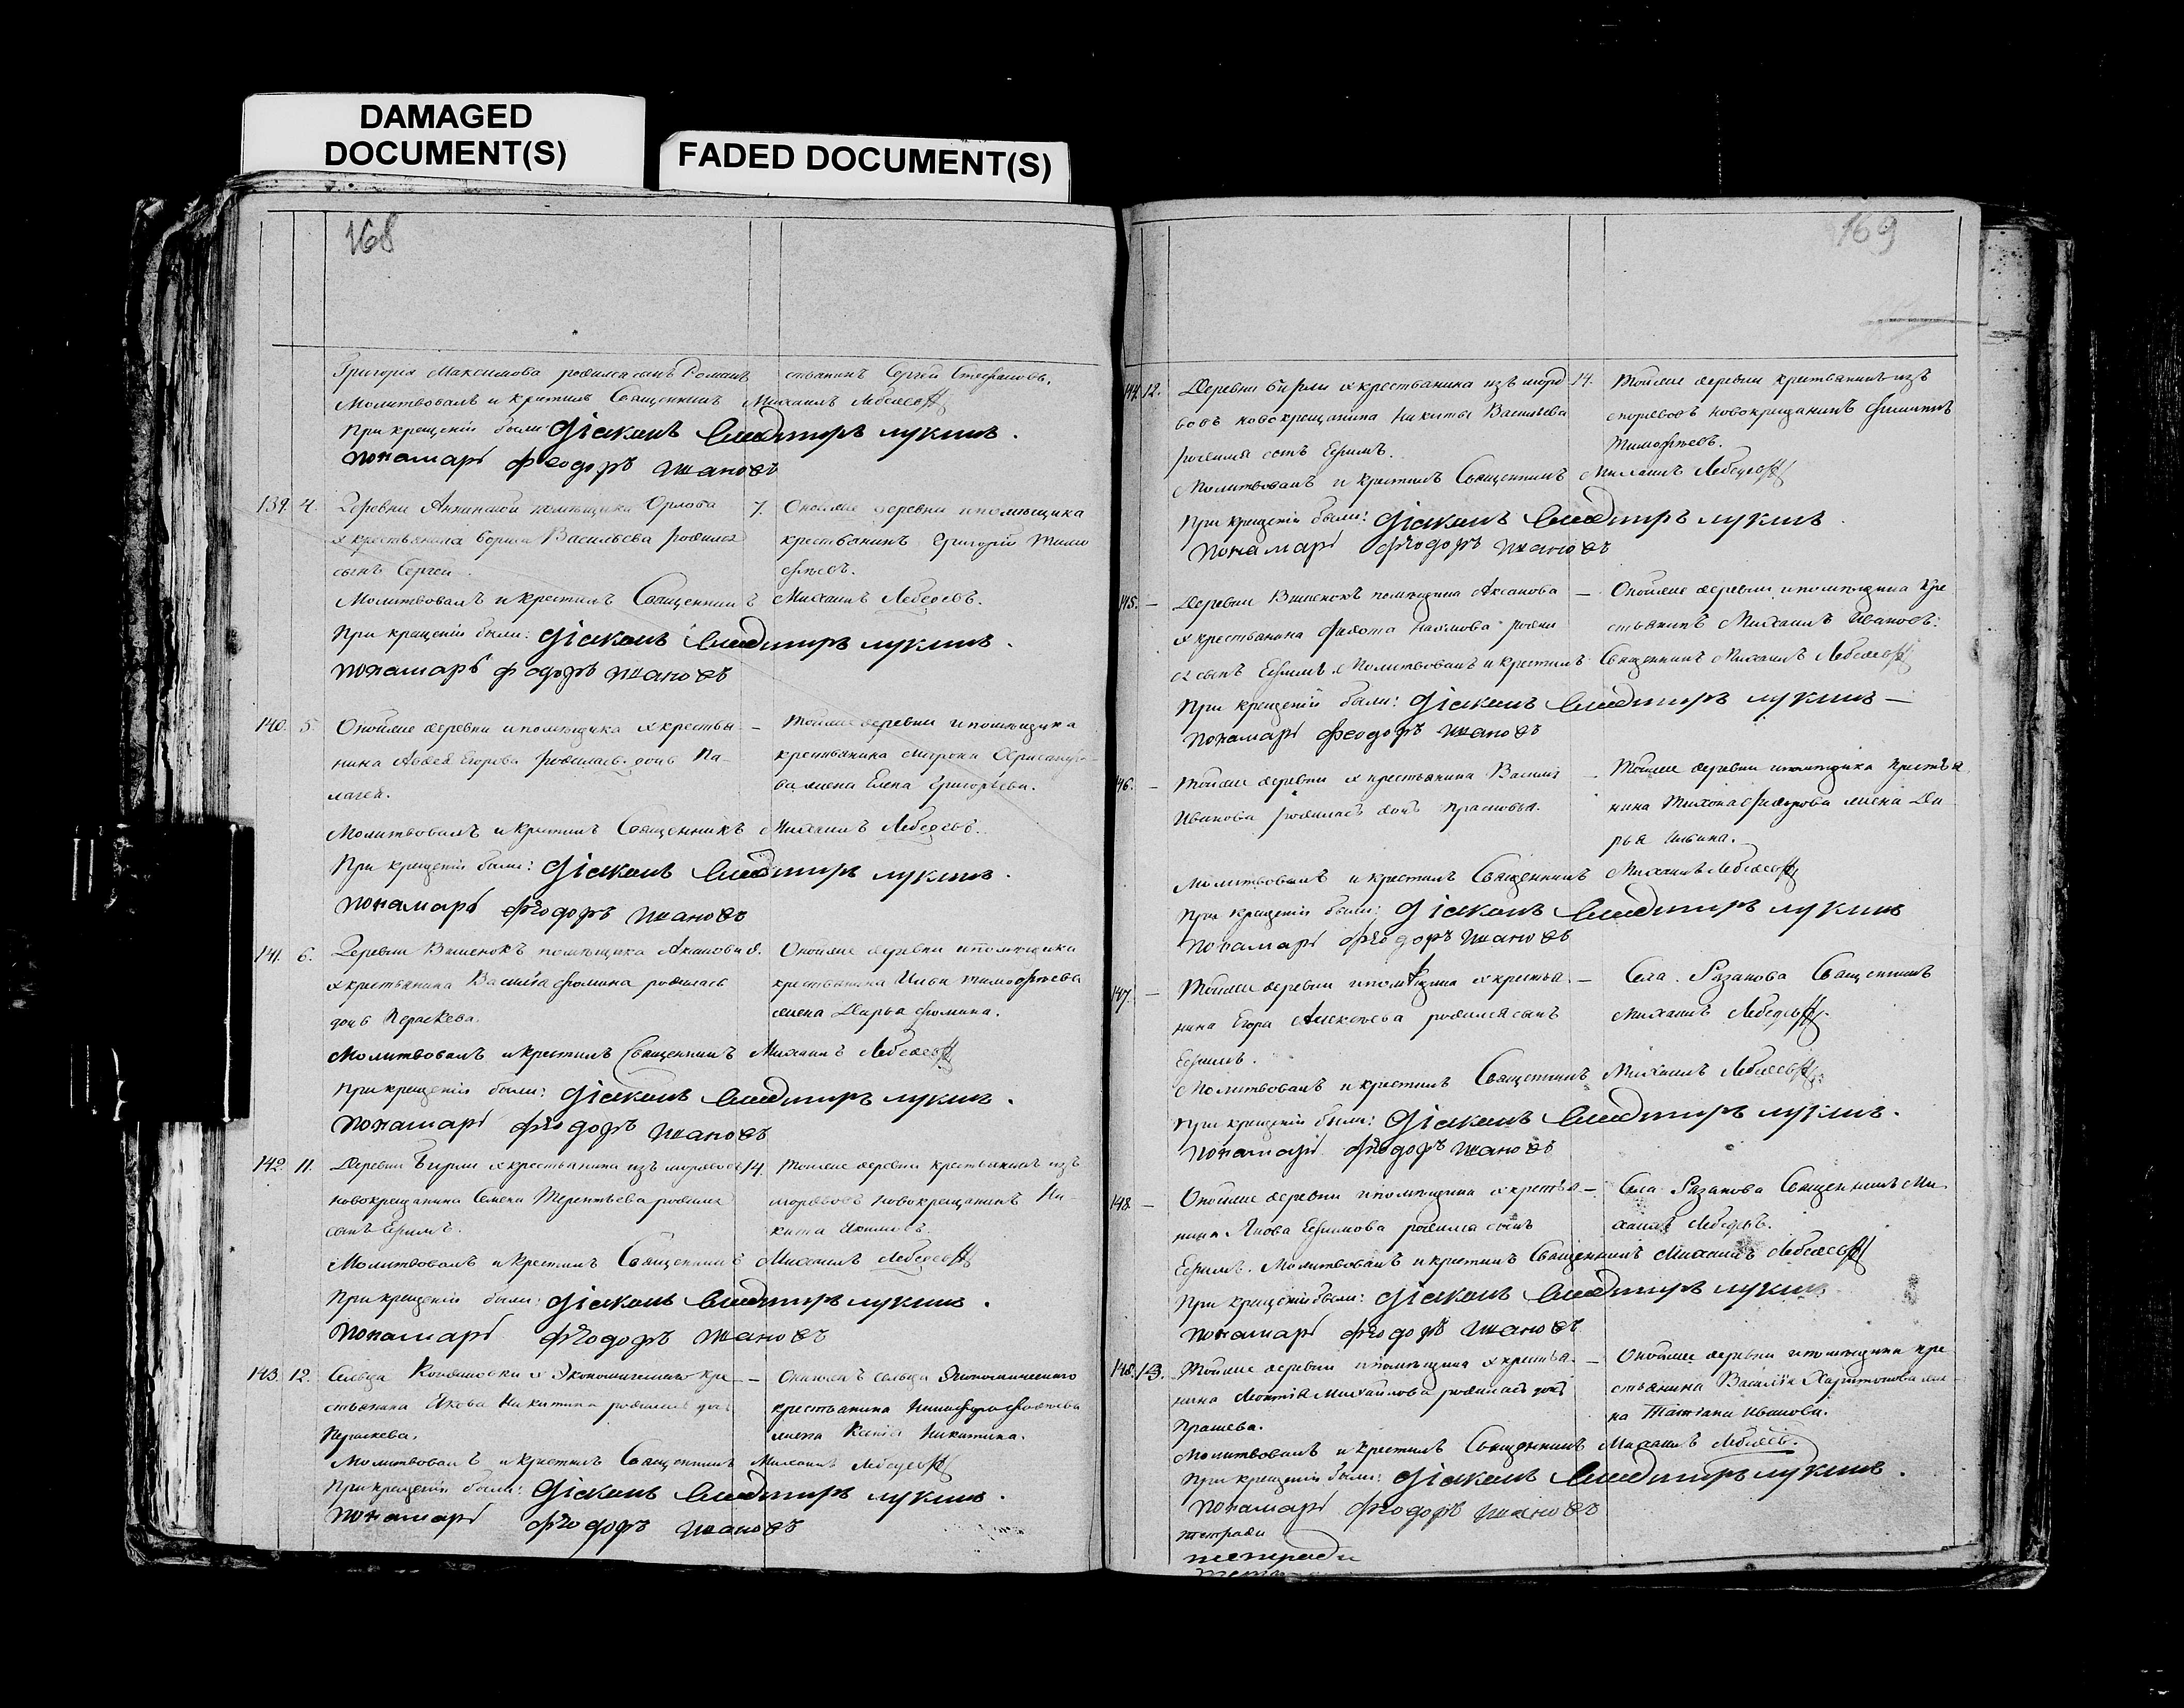 DAMAGED
DOCUMENT(S)
FADED DOCUMENT(S)
168
Григорія Максимова родился сынъ Романъ
ствянинъ Сергей Стефановъ.
Молитвовалъ и крестилъ Священникъ Михаилъ Лебедевъ
При крещеніи были: діаконъ Владимиръ лукинъ.
пономарь феодоръ
139. 4. Деревни Аннинской помѣщика Орлова
у крестьянина Бориса Васильева родился
сынъ Сергей.
7. Оной же деревни и помѣщика
крестьянинъ Григорій Тимо
фѣевъ.
Молитвовалъ и крестилъ Священникъ Михаилъ Лебедевъ.
При крещеніи были: діаконъ Владимиръ лукинъ.
пономарь феодоръ
140. 5. Оной же деревни и помѣщика у крестья
нина Авдея Егорова родилась дочь Па-
лагея.
— Той же деревни и помѣщика
крестьянина Мирона
жена Елена Григорьева.
Молитвовалъ и крестилъ Священникъ Михаилъ Лебедевъ.
При крещеніи были: діаконъ Владимиръ лукинъ.
пономарь феодоръ
141. 6. Деревни Вишенокъ помѣщика
у крестьянина Василія Фомина родилась
дочь Параскева.
8. Оной же деревни и помѣщика
крестьянина Ильи Тимофѣева
жена Дарья Фомина.
Молитвовалъ и крестилъ Священникъ Михаилъ Лебедевъ
При крещеніи были: діаконъ Владимиръ лукинъ.
пономарь феодоръ
142. 11. Деревни Бирли у крестьянина изъ мордвовъ
новокрещанина Семена Терентьева родился
сынъ Ефимъ.
14. Той же деревни крестьянинъ изъ
мордвовъ новокрещанинъ Ни-
кита Якимовъ.
Молитвовалъ и крестилъ Священникъ Михаилъ Лебедевъ
При крещеніи были: діаконъ Владимиръ лукинъ.
пономарь феодоръ
143. 12. Сельца у Экономическаго кре
стьянина Якова Никитина родилась дочь
Параскева.
— Онаго жъ сельца Экономическаго
крестьянина
жена Ксенія Никитина.
Молитвовалъ и крестилъ Священникъ Михаилъ Лебедевъ
При крещеніи были: діаконъ Владимиръ лукинъ.
пономарь феодоръ
169
144. 12. Деревни Бирли у крестьянина изъ морд
вовъ новокрещанина Никиты Васильева
родился сынъ Ефимъ.
14. Той же деревни крестьянинъ изъ
мордвовъ новокрещанинъ Филиппъ
Тимофѣевъ.
Молитвовалъ и крестилъ Священникъ Михаилъ Лебедевъ
При крещеніи были: діаконъ Владимиръ лукинъ
пономарь феодоръ
145. — Деревни Вишенокъ помѣщика
у крестьянина Федота Наумова роди
лся сынъ Ефимъ. Молитвовалъ и крестилъ Священникъ Михаилъ Лебедевъ
— Оной же деревни и помѣщика кре
стьянинъ Михаилъ Ивановъ.
При крещеніи были: діаконъ Владимиръ лукинъ —
пономарь феодоръ
146. — Той же деревни у крестьянина Василія
Иванова родилась дочь Прасковья.
— Той же деревни и помѣщика крестья
нина Тихона Федорова жена Да
рья Ильина.
Молитвовалъ и крестилъ Священникъ Михаилъ Лебедевъ
При крещеніи были: діаконъ Владимиръ лукинъ
пономарь феодоръ
147. — Той же деревни и помѣщика у крестья
нина Егора Алексѣева родился сынъ
Ефимъ.
— Села Рязанова Священникъ
Михаилъ Лебедевъ.
Молитвовалъ и крестилъ Священникъ Михаилъ Лебедевъ
При крещеніи были: діаконъ Владимиръ лукинъ.
пономарь феодоръ
148. — Оной же деревни и помѣщика у крестья
нина Ефимова родился сынъ
— Села Рязанова Священникъ Ми
хаилъ Лебедевъ.
Ефимъ. Молитвовалъ и крестилъ Священникъ Михаилъ Лебедевъ
При крещеніи были: діаконъ Владимиръ лукинъ
пономарь феодоръ
148. 13. Той же деревни и помѣщика у крестья
нина Михайлова родилась дочь
— Оной же деревни и помѣщика кре
стьянина Василія Харитонова же
на Татіана Иванова.
Молитвовалъ и крестилъ Священникъ Михаилъ Лебедевъ.
При крещеніи были: діаконъ Владимиръ лукинъ.
пономарь феодоръ
тетради
тетради